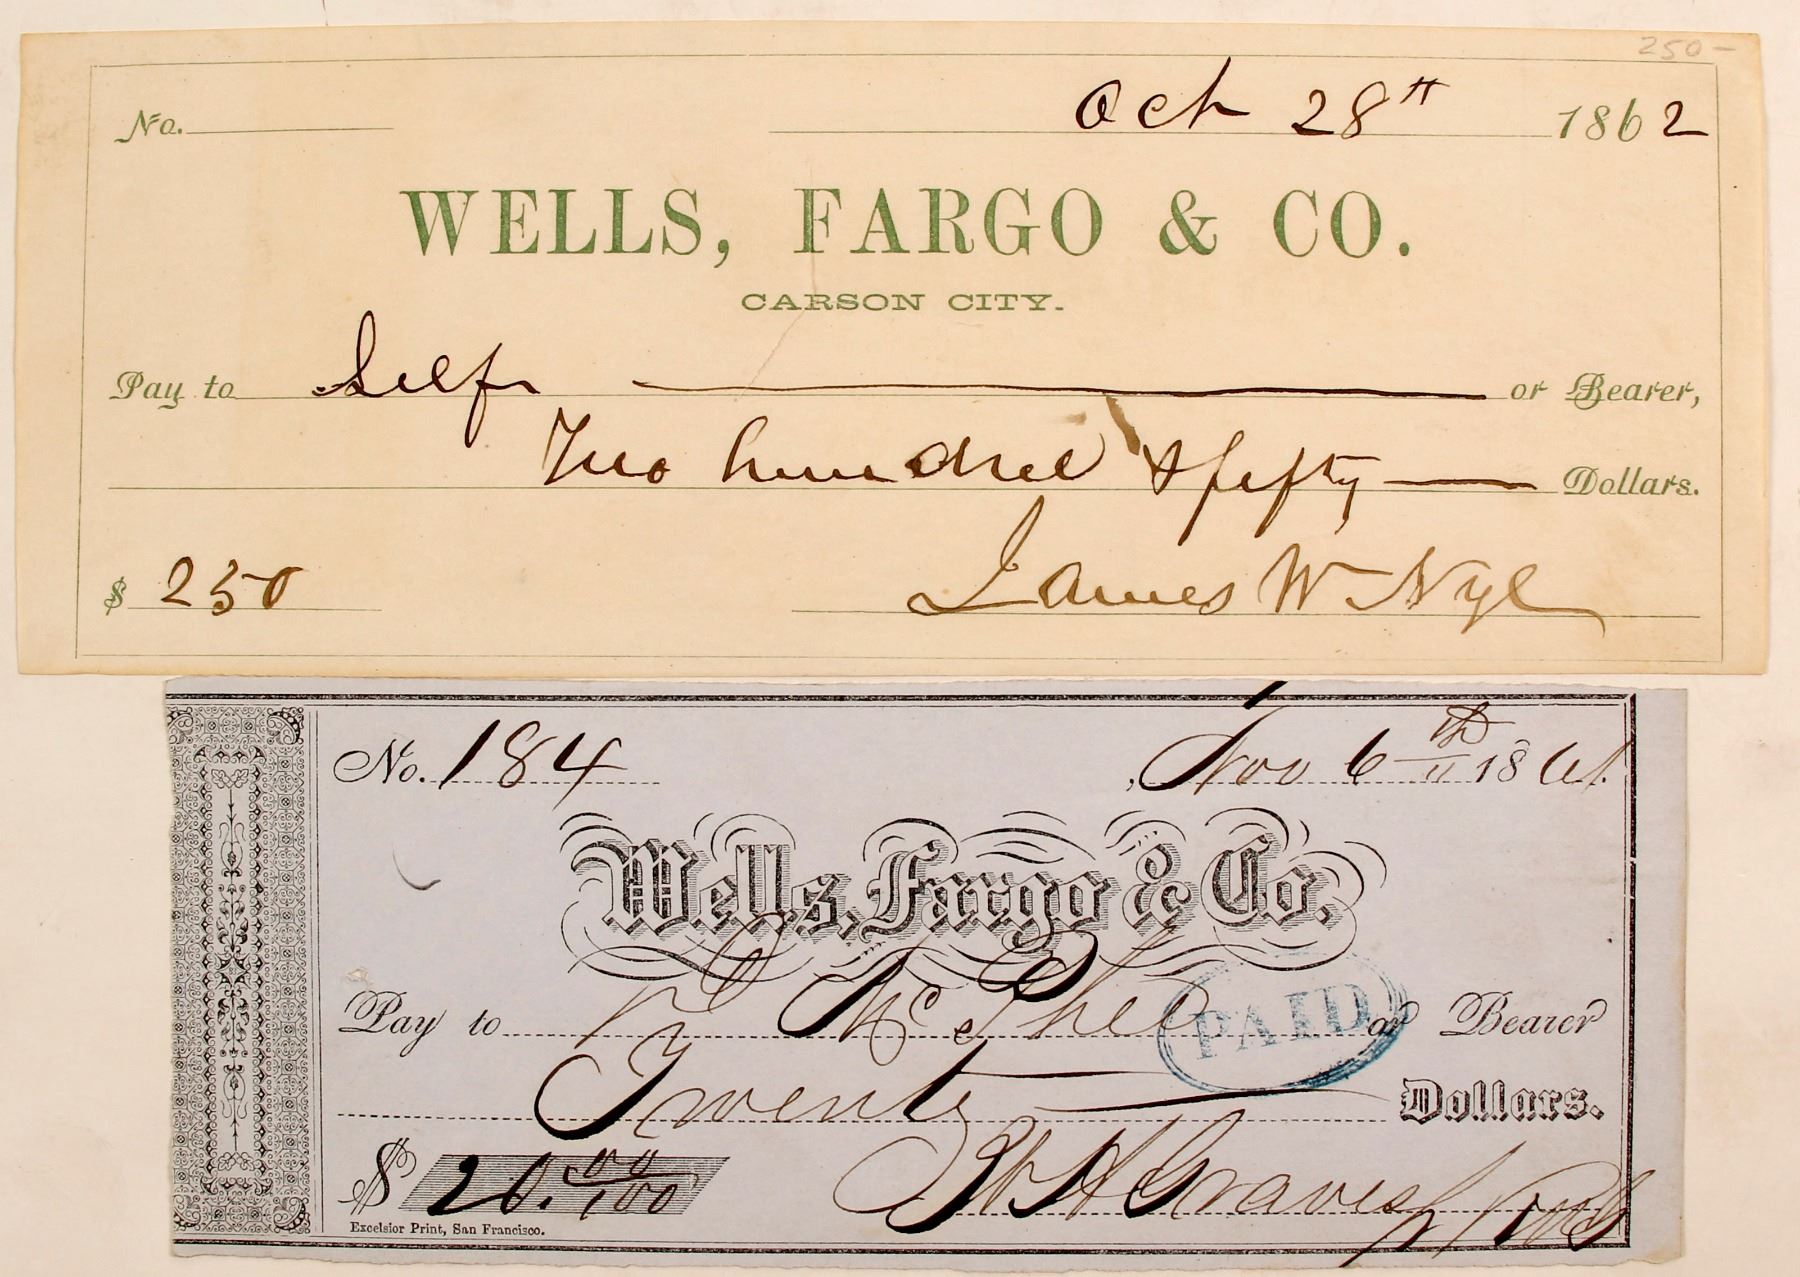 250–
No. Oct 28th 1862
WELLS, FARGO & CO.
CARSON CITY.
Pay to Self or Bearer,
Two hundred & fifty Dollars.
$ 250 James W Nye
No. 184 Nov 6th 1861.
Wells, Fargo & Co.
Pay to McPhee or Bearer
PAID
Twenty Dollars.
$ 20.00/100 Graves
Excelsior Print, San Francisco.